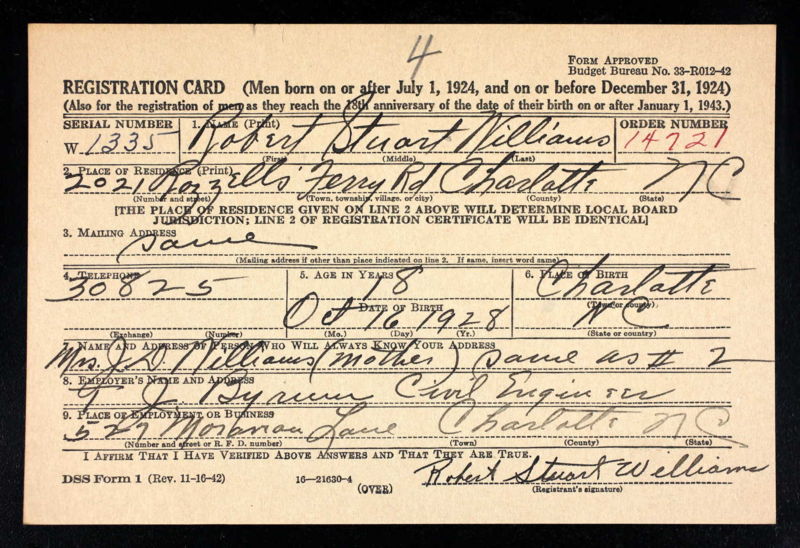 4
FORM APPROVED
Budget Bureau No. 33-R012-42
REGISTRATION CARD (Men born on or after July 1, 1924, and on or before December 31, 1924)
(Also for the registration of men as they reach the 18th anniversary of the date of their birth on or after January 1, 1943.)
SERIAL NUMBER 1. NAME (Print) ORDER NUMBER
W 1335 Robert Stuart Williams 14721
(First) (Middle) (Last)
2. PLACE OF RESIDENCE (Print)
2021 Rozzells Ferry Rd Charlotte N C
(Number and street) (Town, township, village, or city) (County) (State)
[THE PLACE OF RESIDENCE GIVEN ON LINE 2 ABOVE WILL DETERMINE LOCAL BOARD
JURISDICTION; LINE 2 OF REGISTRATION CERTIFICATE WILL BE IDENTICAL]
3. MAILING ADDRESS
same
(Mailing address if other than place indicated on line 2. If same, insert word same)
4. TELEPHONE 5. AGE IN YEARS 6. PLACE OF BIRTH
30825 18 Charlotte
DATE OF BIRTH (Town or county)
Oct 16 1928 N C
(Exchange) (Number) (Mo.) (Day) (Yr.) (State or country)
7. NAME AND ADDRESS OF PERSON WHO WILL ALWAYS KNOW YOUR ADDRESS
Mrs. J. D. Williams (mother) same as # 2
8. EMPLOYER'S NAME AND ADDRESS
J. Byrum Civil Engineer
9. PLACE OF EMPLOYMENT OR BUSINESS
527 Lane Charlotte N C
(Number and street or R. F. D. number) (Town) (County) (State)
I AFFIRM THAT I HAVE VERIFIED ABOVE ANSWERS AND THAT THEY ARE TRUE.
Robert Stuart Williams
DSS Form 1 (Rev. 11-16-42) 16—21630-4 (Registrant's signature)
(OVER)